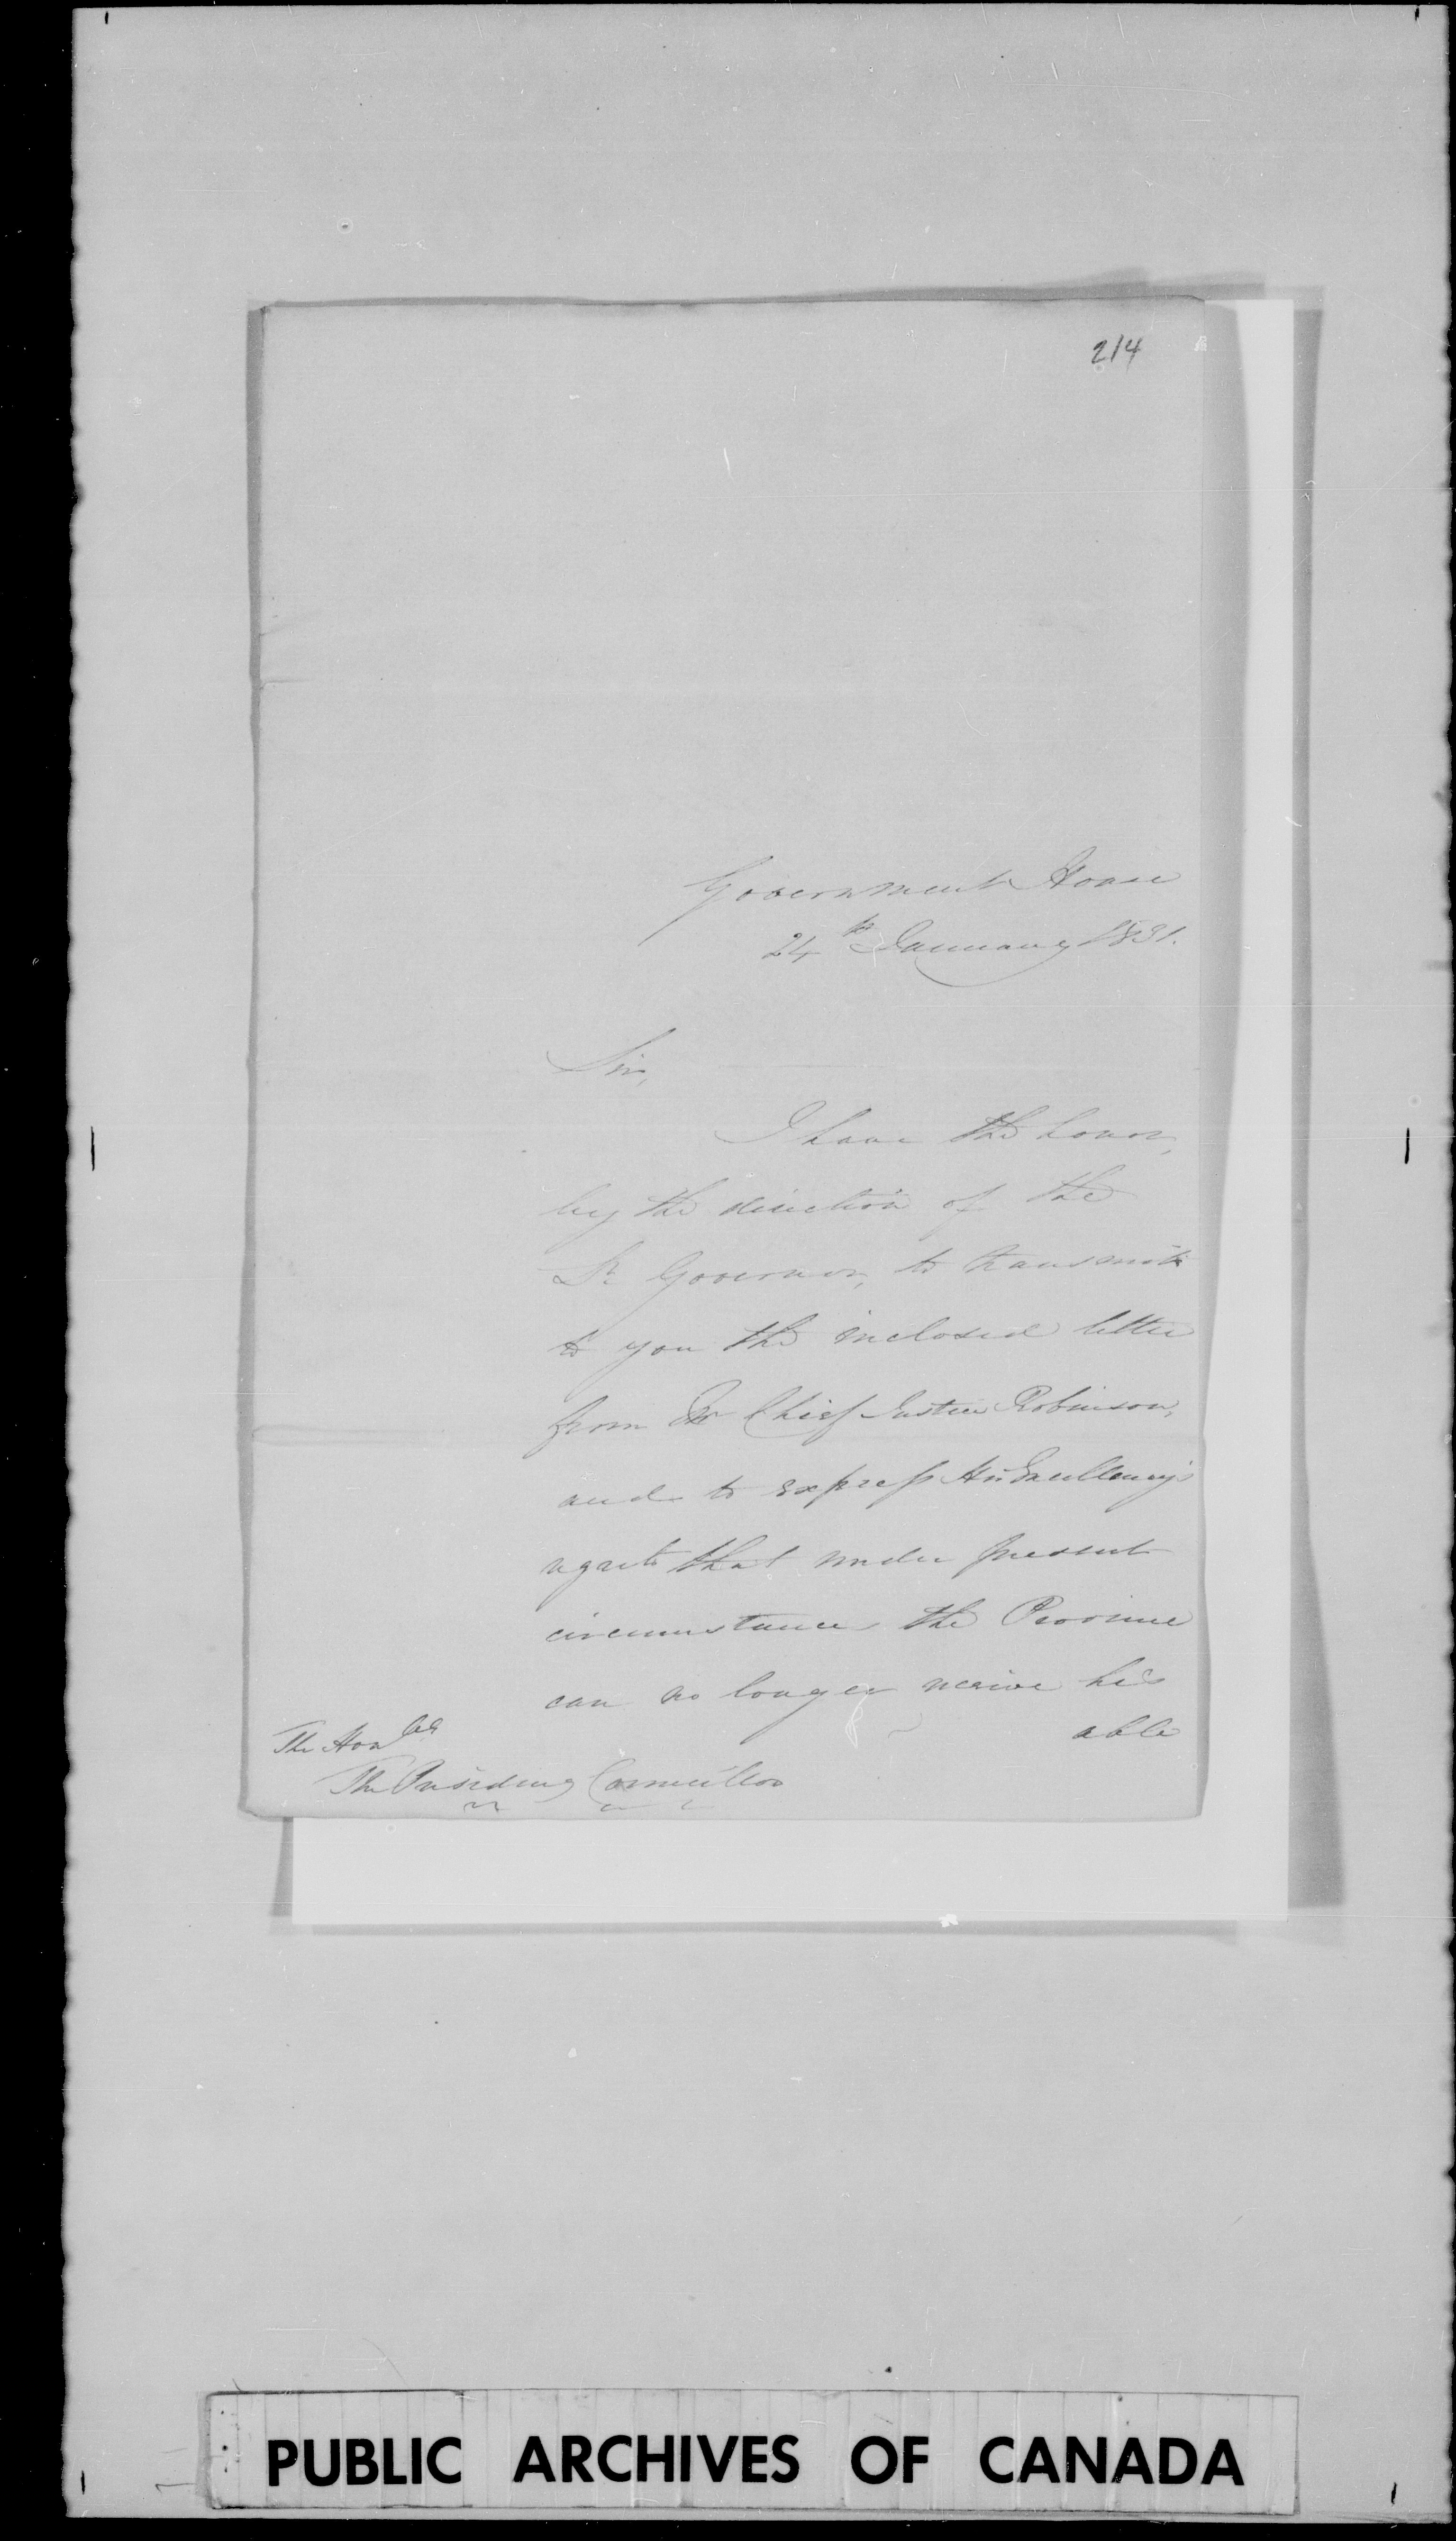 214
Government House
24th January 1831.
Sir,
I have the honor,
by the direction of the
Lt Governor, to transmit
to you the inclosed letter
from Mr Chief Justice Robinson,
and to express His Excellency's
regret that under present
circumstances the Province
can no longer receive his
able
The Honble
The Presiding Councillor
PUBLIC ARCHIVES OF CANADA